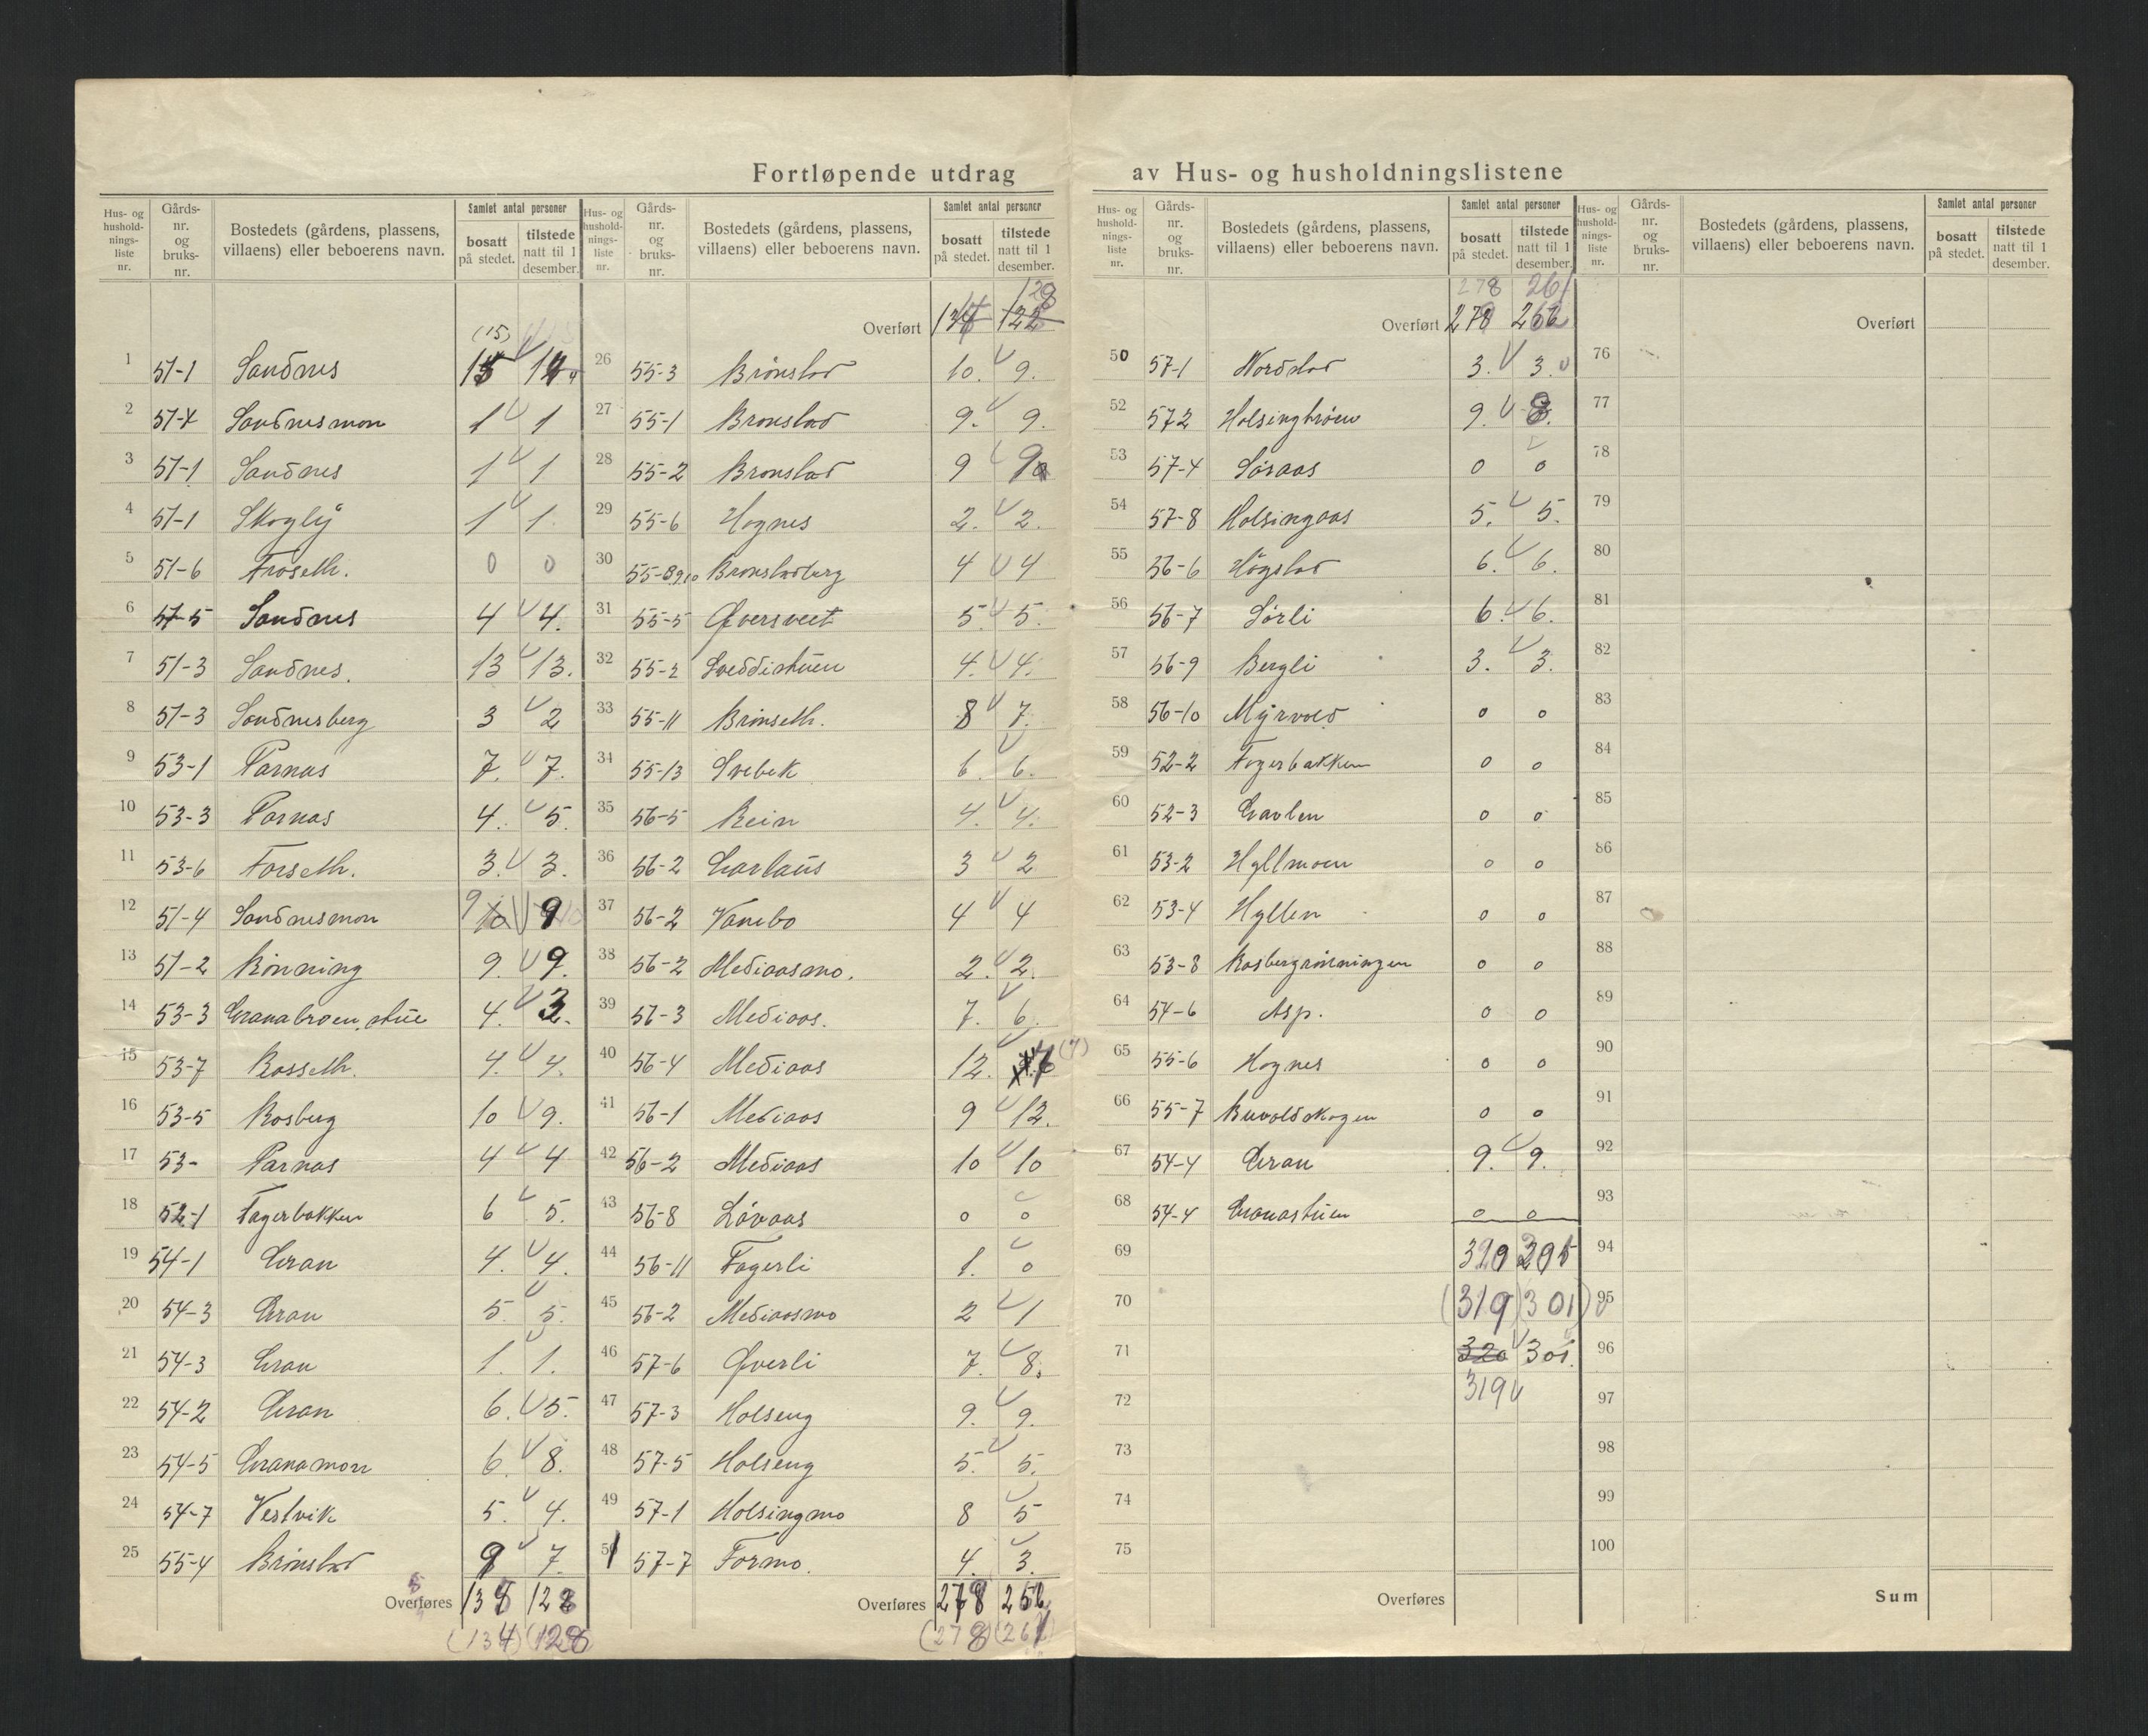 Fortløpende utdrag av Hus- og husholdningslistene
Hus- og hushold- nings- liste nr. | Gårds- nr. og bruks- nr. | Bostedets (gårdens, plassens, villaens) eller beboerens navn. | Samlet antal personer | bosatt på stedet. | tilstede natt til 1 desember.
(15)
1 51-1 Sandnes 15 14
2 51-4 Sandnesmon 1 1
3 51-1 Sandnes 1 1
4 51-1 Skogly 1 1.
5 51-6 Froseth. 0 0
6 51-5 Sandnes 4 4.
7 51-3 Sandnes. 13 13.
8 51-3 Sandnesberg 3 2
9 53-1 Parnas 7. 7.
10 53-3 Parnas 4. 5.
11 53-6 Forseth. 3. 3.
12 51-4 Sandnesmon 9 9
13 51-2 Rönning 9. 9.
14 53-3 Granabroen, stue 4. 3.
15 53-7 Rosseth. 4. 4.
16 53-5 Rosberg 10 9.
17 53- Parnas 4 4
18 52-1 Fagerbakken 6 5.
19 54-1 Gran 4. 4.
20 54-3 Gran 5. 5.
21 54-3 Gran 1. 1.
22 54-2 Gran 6. 5.
23 54-5 Granamon 6. 8.
24 54-7 Vestvik 5. 4.
25 55-4 Brönstad 9 7.
Overføres
(134) (128)
Hus- og hushold- nings- liste nr. | Gårds- nr. og bruks- nr. | Bostedets (gårdens, plassens, villaens) eller beboerens navn. | Samlet antal personer | bosatt på stedet. | tilstede natt til 1 desember.
128
Overført 134 122
26 55-3 Brönstad 10. 9.
27 55-1 Bronstad 9. 9.
28 55-2 Bronstad 9 9
29 55-6 Hognes 2. 2.
30 55-8,9,10 Bronstadberg 4 4
31 55-5 Qversveet 5. 5.
32 55-2 Sveddistuen 4. 4.
33 55-11 Brönseth. 8 7.
34 55-13 Svebek 6. 6.
35 56-5 Rein 4. 4.
36 56-2 Garlaus 3 2
37 56-2 Vanebo 4 4
38 56-2 Mediaasmo. 2. 2.
39 56-3 Mediaas. 7. 6.
40 56-4 Mediaas 12. 7 (7)
41 56-1 Mediaas 9 12.
42 56-2 Mediaas 10 10
43 56-8 Lövaas 0 0
44 56-11 Fagerli 1. 0
45 56-2 Mediaasmo 2 1
46 57-6 Qverli 7. 8.
47 57-3 Holseng 9. 9.
48 57-5 Holseng 5. 5.
49 57-1 Holsingmo 8 5
51 57-7 Formo. 4. 3.
Overføres 278
(278) (261)
Hus- og hushold- nings- liste nr. | Gårds- nr. og bruks- nr. | Bostedets (gårdens, plassens, villaens) eller beboerens navn. | Samlet antal personer | bosatt på stedet. | tilstede natt til 1 desember.
278 261
Overført 278 262
50 57-1 Nordstad 3. 3.
52 57-2 Holsingbröen 9. 8.
53 57-4 Söraas 0 0
54 57-8 Holsingaas 5. 5.
55 56-6 Högstad 6. 6.
56 56-7 Sörli 6. 6.
57 56-9 Bergli 3. 3.
58 56-10 Myrvold 0 0
59 52-2 Fagerbakken 0 0
60 52-3 Gavlen 0 0
61 53-2 Hyllmoen 0 0
62 53-4 Hyllen 0 0
63 53-8 Rosbergrönningen 0 0
64 54-6 Asp. 0 0
65 55-6 Hognes 0 0
66 55-7 Buvoldskogen 0 0
67 54-4 Gran 9. 9.
68 54-4 Granastuen 0 0
69 320
70 (319) (301)
71 320 301.
72 319
73
74
75
Overføres
Hus- og hushold- nings- liste nr. | Gårds- nr. og bruks- nr. | Bostedets (gårdens, plassens, villaens) eller beboerens navn. | Samlet antal personer | bosatt på stedet. | tilstede natt til 1 desember.
Overført
76
77
78
79
80
81
82
83
84
85
86
87
88
89
90
91
92
93
94
95
96
97
98
99
100
Sum